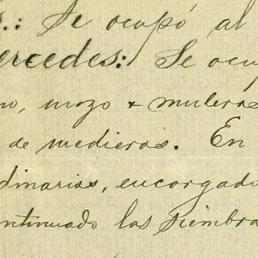 .: Se ocupó al
ercedes: Se ocup
no, mozo + muleras
de medieras. En
dinarias, encargado
ontinuado las siembra